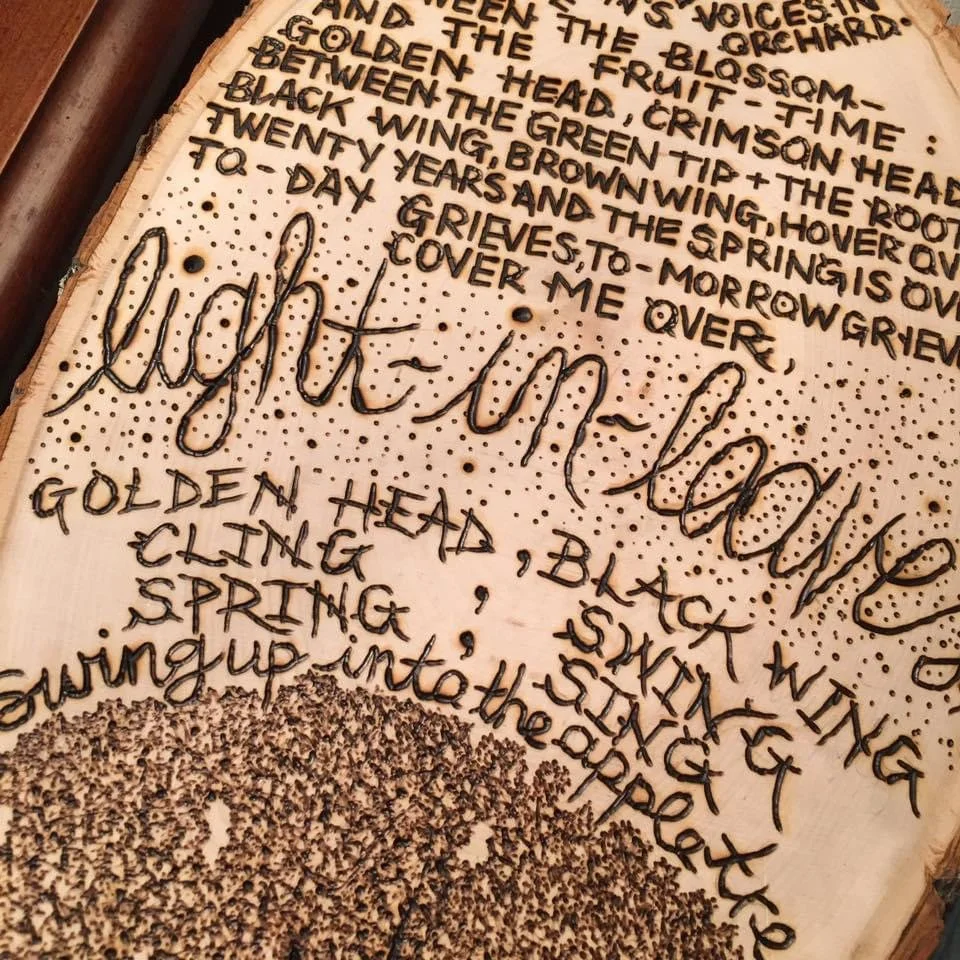 VOICES IN
ORCHARD
WEEN THE BLOSSOM-
AND THE FRUIT-TIME :
GOLDEN HEAD, CRIMSON HEAD
BETWEEN THE GREEN TIP + THE ROOT
BLACK WING, BROWN WING, HOVER OV
TWENTY YEARS AND THE SPRING IS OV
TO-DAY GRIEVES, TO-MORROW GRIEV
COVER ME OVER,
light-in-leave
GOLDEN HEAD, BLACK WING
CLING, SWING
SPRING, SING
swing up into the apple tree